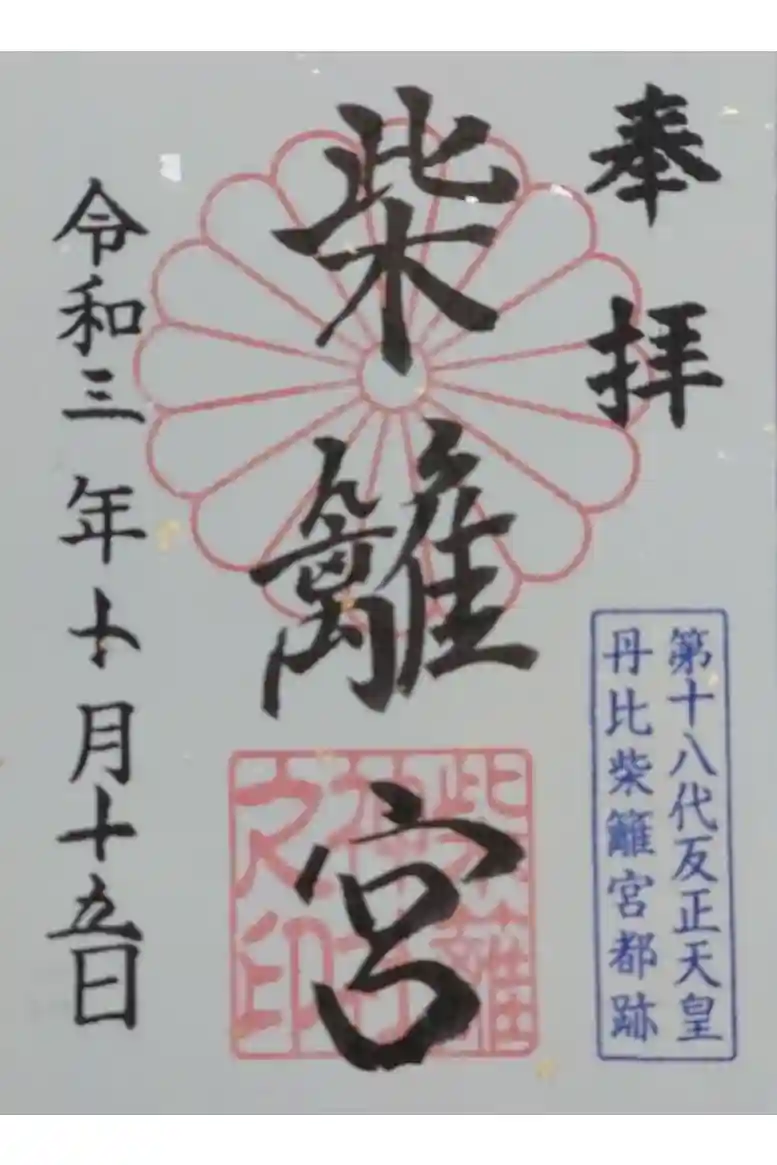 奉拝
第十八代反正天皇
丹比柴籬宮都跡
柴籬宮
柴籬神社之印
令和三年十月十五日